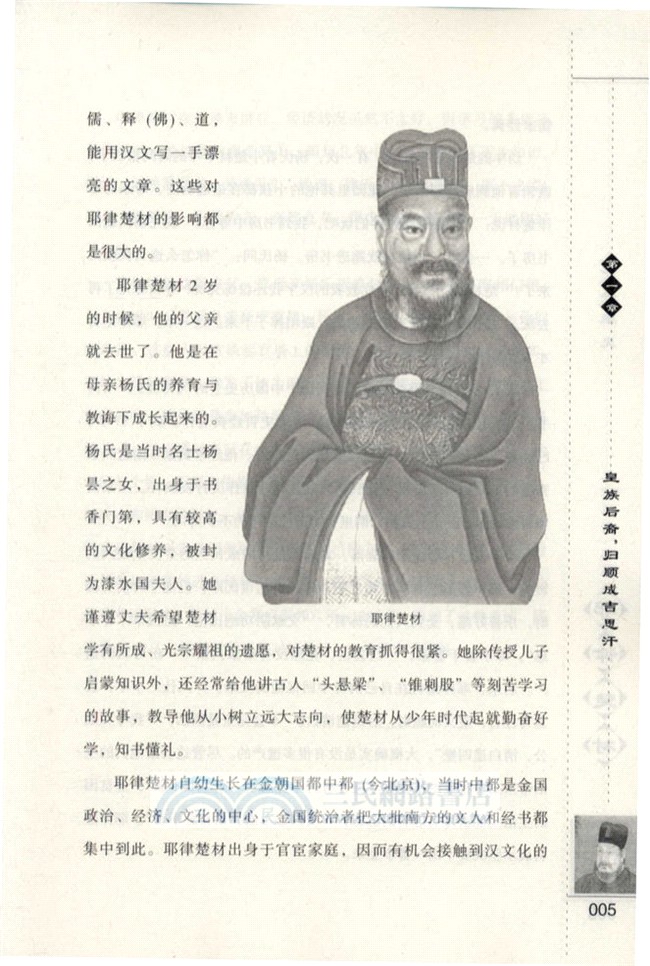 儒、释（佛）、道，
能用汉文写一手漂
亮的文章。这些对
耶律楚材的影响都
是很大的。
耶律楚材2岁
的时候，他的父亲
就去世了。他是在
母亲杨氏的养育与
教诲下成长起来的。
杨氏是当时名士杨
昙之女，出身于书
香门第，具有较高
的文化修养，被封
为漆水国夫人。她
谨遵丈夫希望楚材
学有所成、光宗耀祖的遗愿，对楚材的教育抓得很紧。她除传授儿子
启蒙知识外，还经常给他讲古人“头悬梁”、“锥刺股”等刻苦学习
的故事，教导他从小树立远大志向，使楚材从少年时代起就勤奋好
学，知书懂礼。
耶律楚材自幼生长在金朝国都中都（今北京）。当时中都是金国
政治、经济、文化的中心，金国统治者把大批南方的文人和经书都
集中到此。耶律楚材出身于官宦家庭，因而有机会接触到汉文化的
耶律楚材
第一章
皇族后裔，归顺成吉思汗
005
三民網路書店